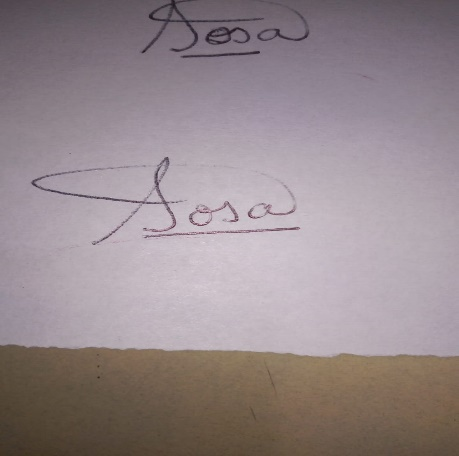 Sosa
Sosa